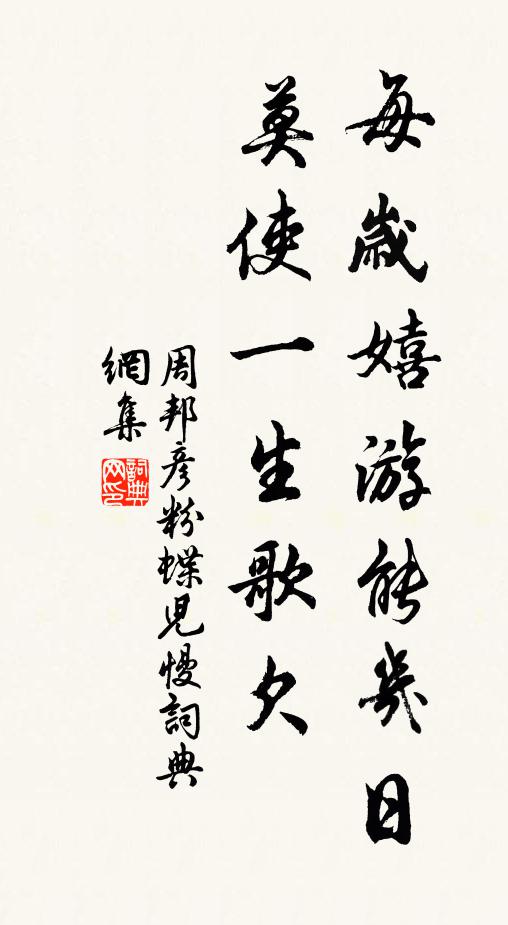 每歲嬉游能幾日
莫使一生歌欠
周邦彥粉蝶兒慢詞典
網集
詞典网印